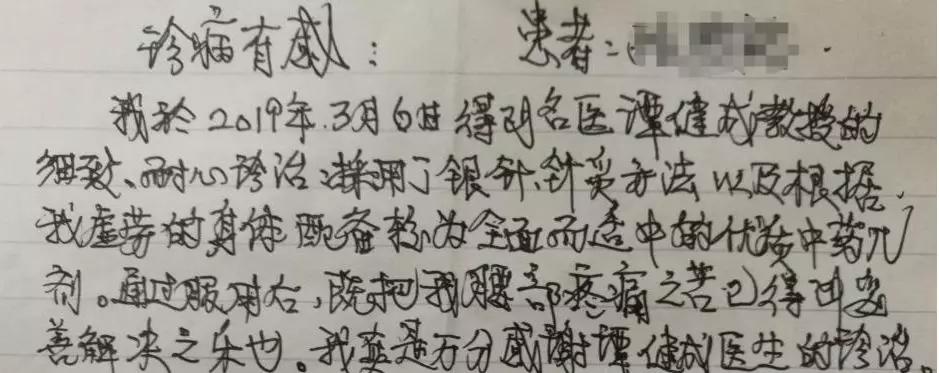 诊病有感： 患者：
我於2019年3月6日得明名医谭健成教授的
细致、耐心诊治：采用了银针、针灸办法以及根据
我虚劳的身体配备较为全面而适中的优质中药几
剂。通过服用后，既把我腰部疼痛之苦已得到妥
善解决之乐也。我实是万分感谢谭健成医生的诊治。